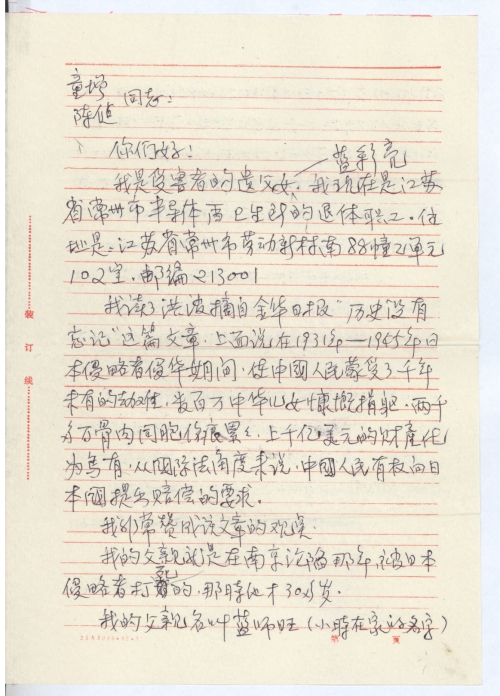 童增
陈健 同志:
你们好!
蓝彩亮
我是受害者的遗父女,我现在是江苏
省常州市半导体厂卫生所的退休职工。住
址是:江苏省常州市劳动新村南88幢乙单元
102室。邮编213001
我读了洪波摘自金华日报“历史没有
忘记”这篇文章,上面说在1931年—1945年日
本侵略者侵华期间,使中国人民蒙受了千年
未有的劫难,数百万中华儿女慷慨捐躯,两千
多万骨肉同胞伤痕累累,上千亿美元的财产化
为乌有,从国际法角度来说,中国人民有权向日
本国提出赔偿的要求。
我非常赞成该文章的观点。
我的父亲就是在南京沦陷那年被日本
侵略者打死的,那时他才30多岁。
我的父亲名叫蓝师旺(小时在家的名字)
装订线
第 页